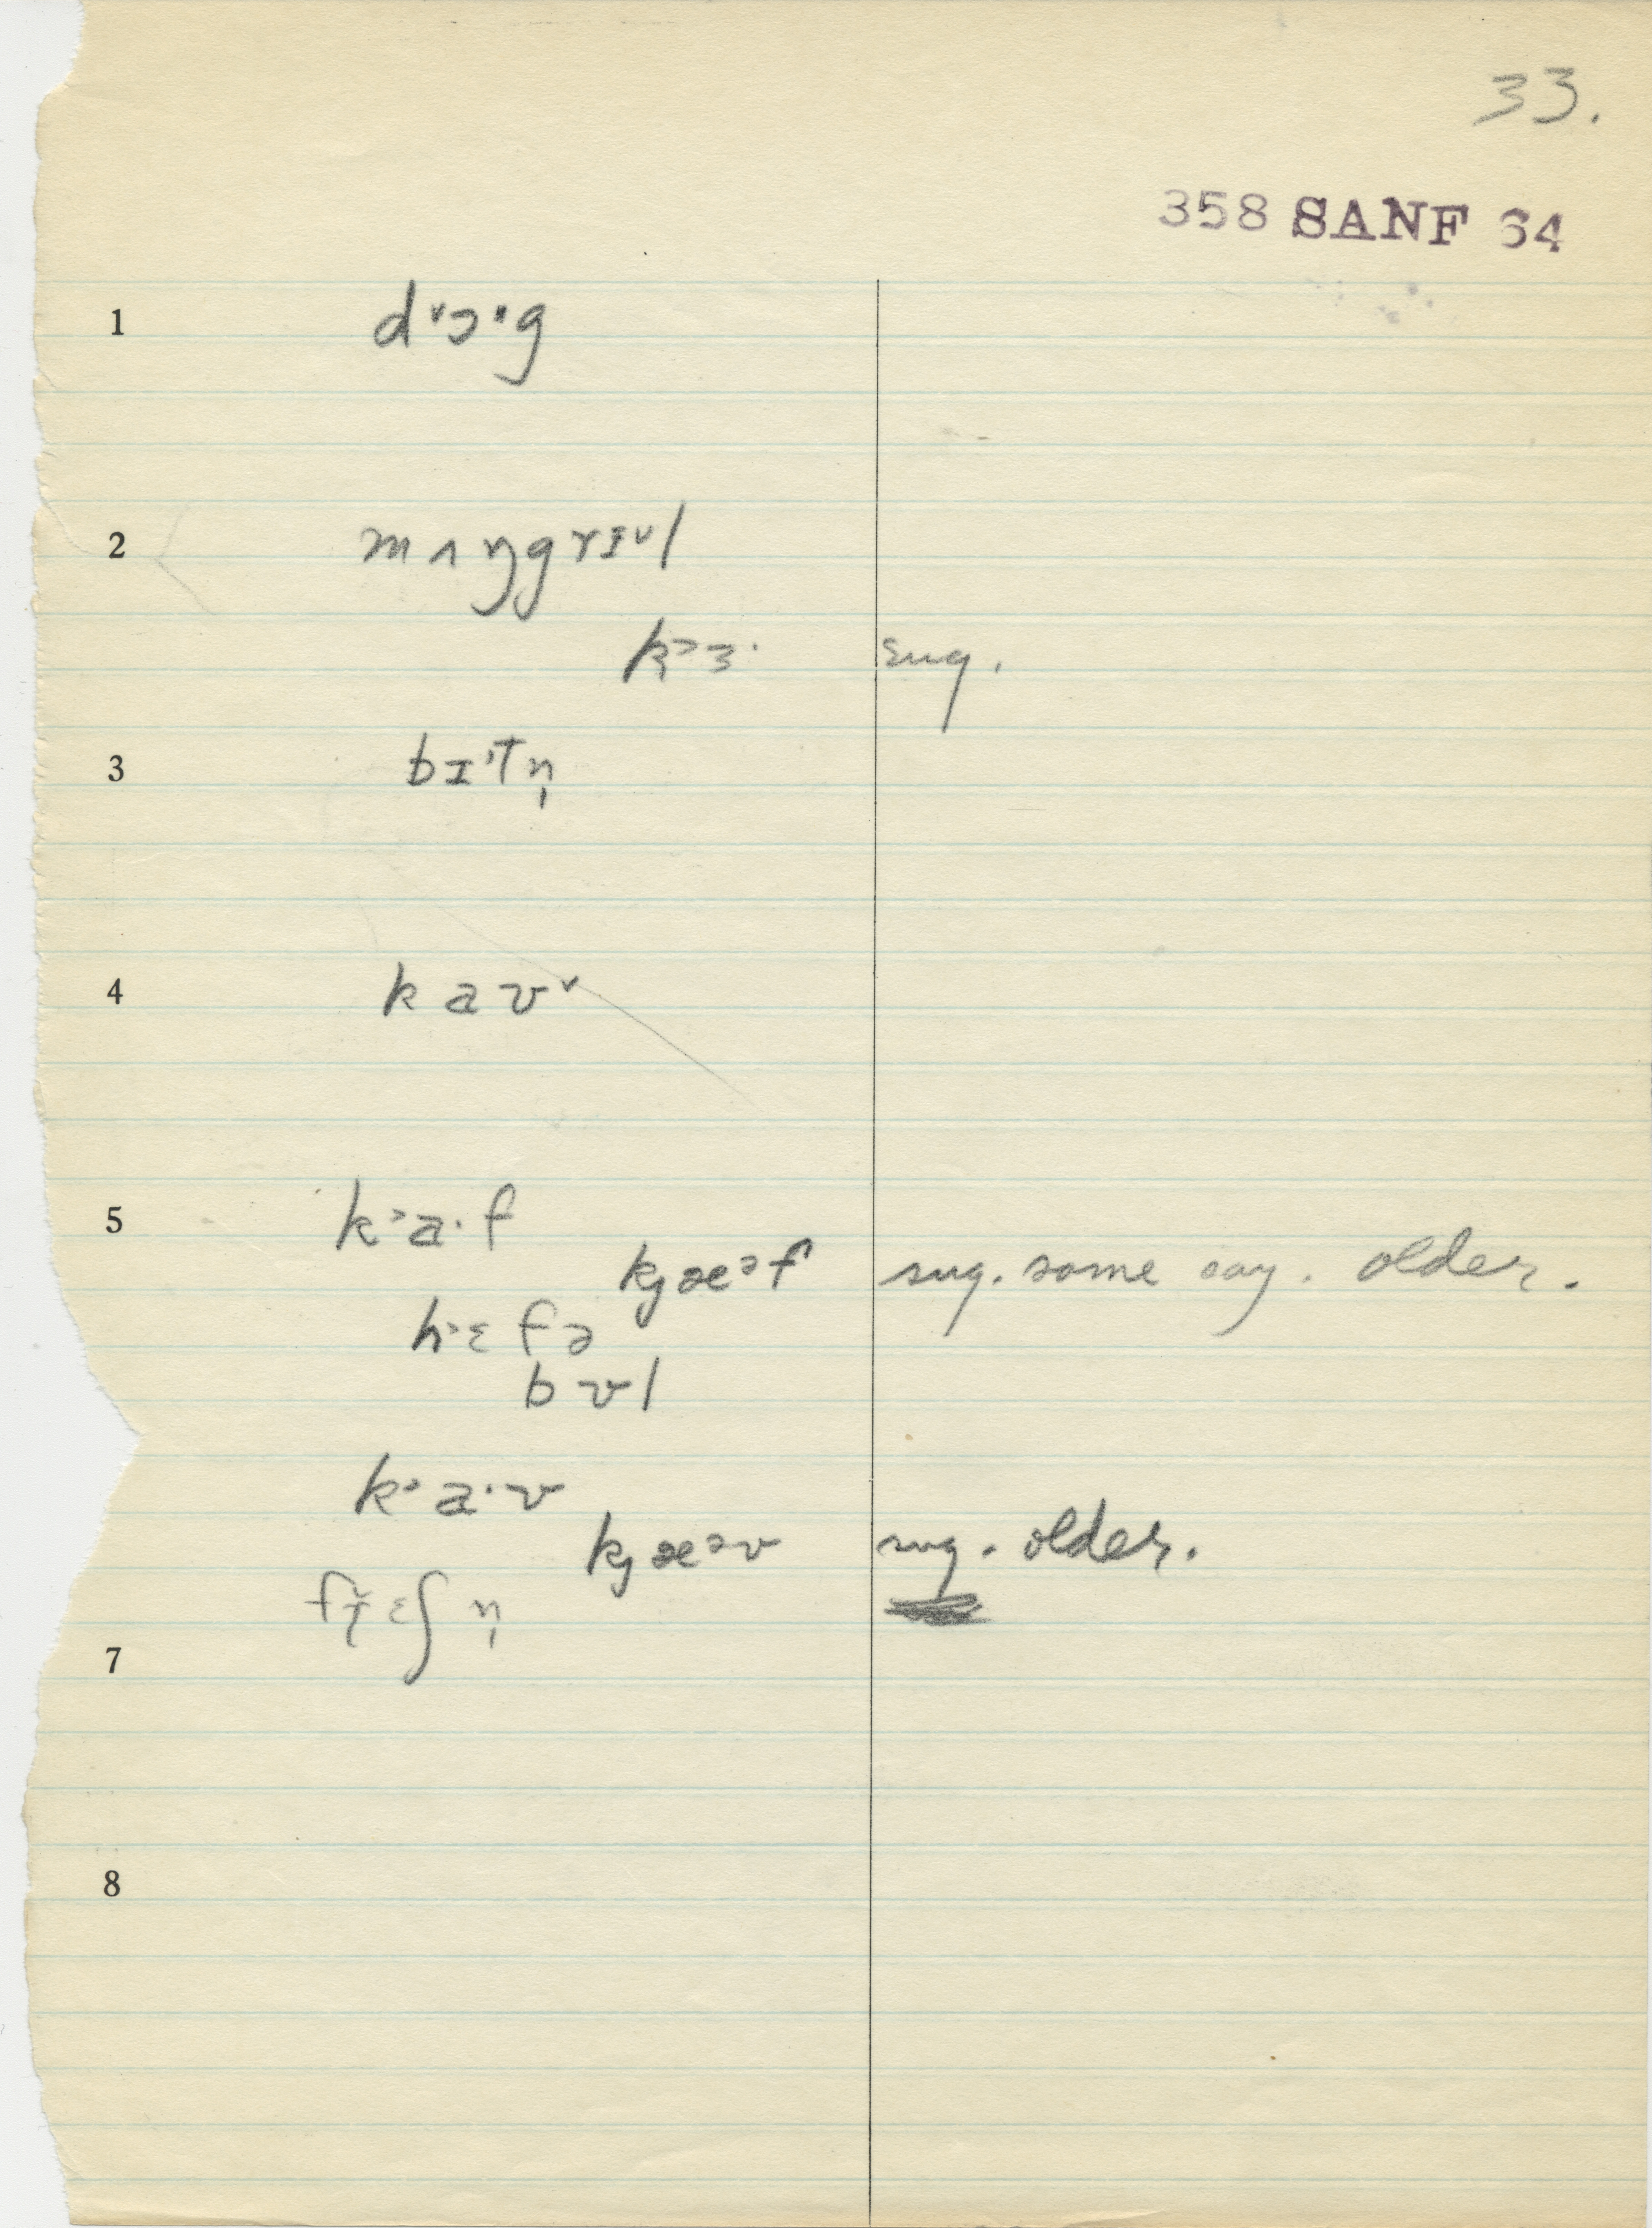 33.
358 SANF 64
1 dˇɔ·g
2 mʌŋgrɪᵛl
kʾɜ· sug.
3 bɪˈtn̩
4 k a vˇ
5 kʾa·f
kj æəf sug. some say. older.
hʾɛ fə
b ʊ l
kʾa·v
kj æəv sug. older.
ɛʃ n̩
7
8